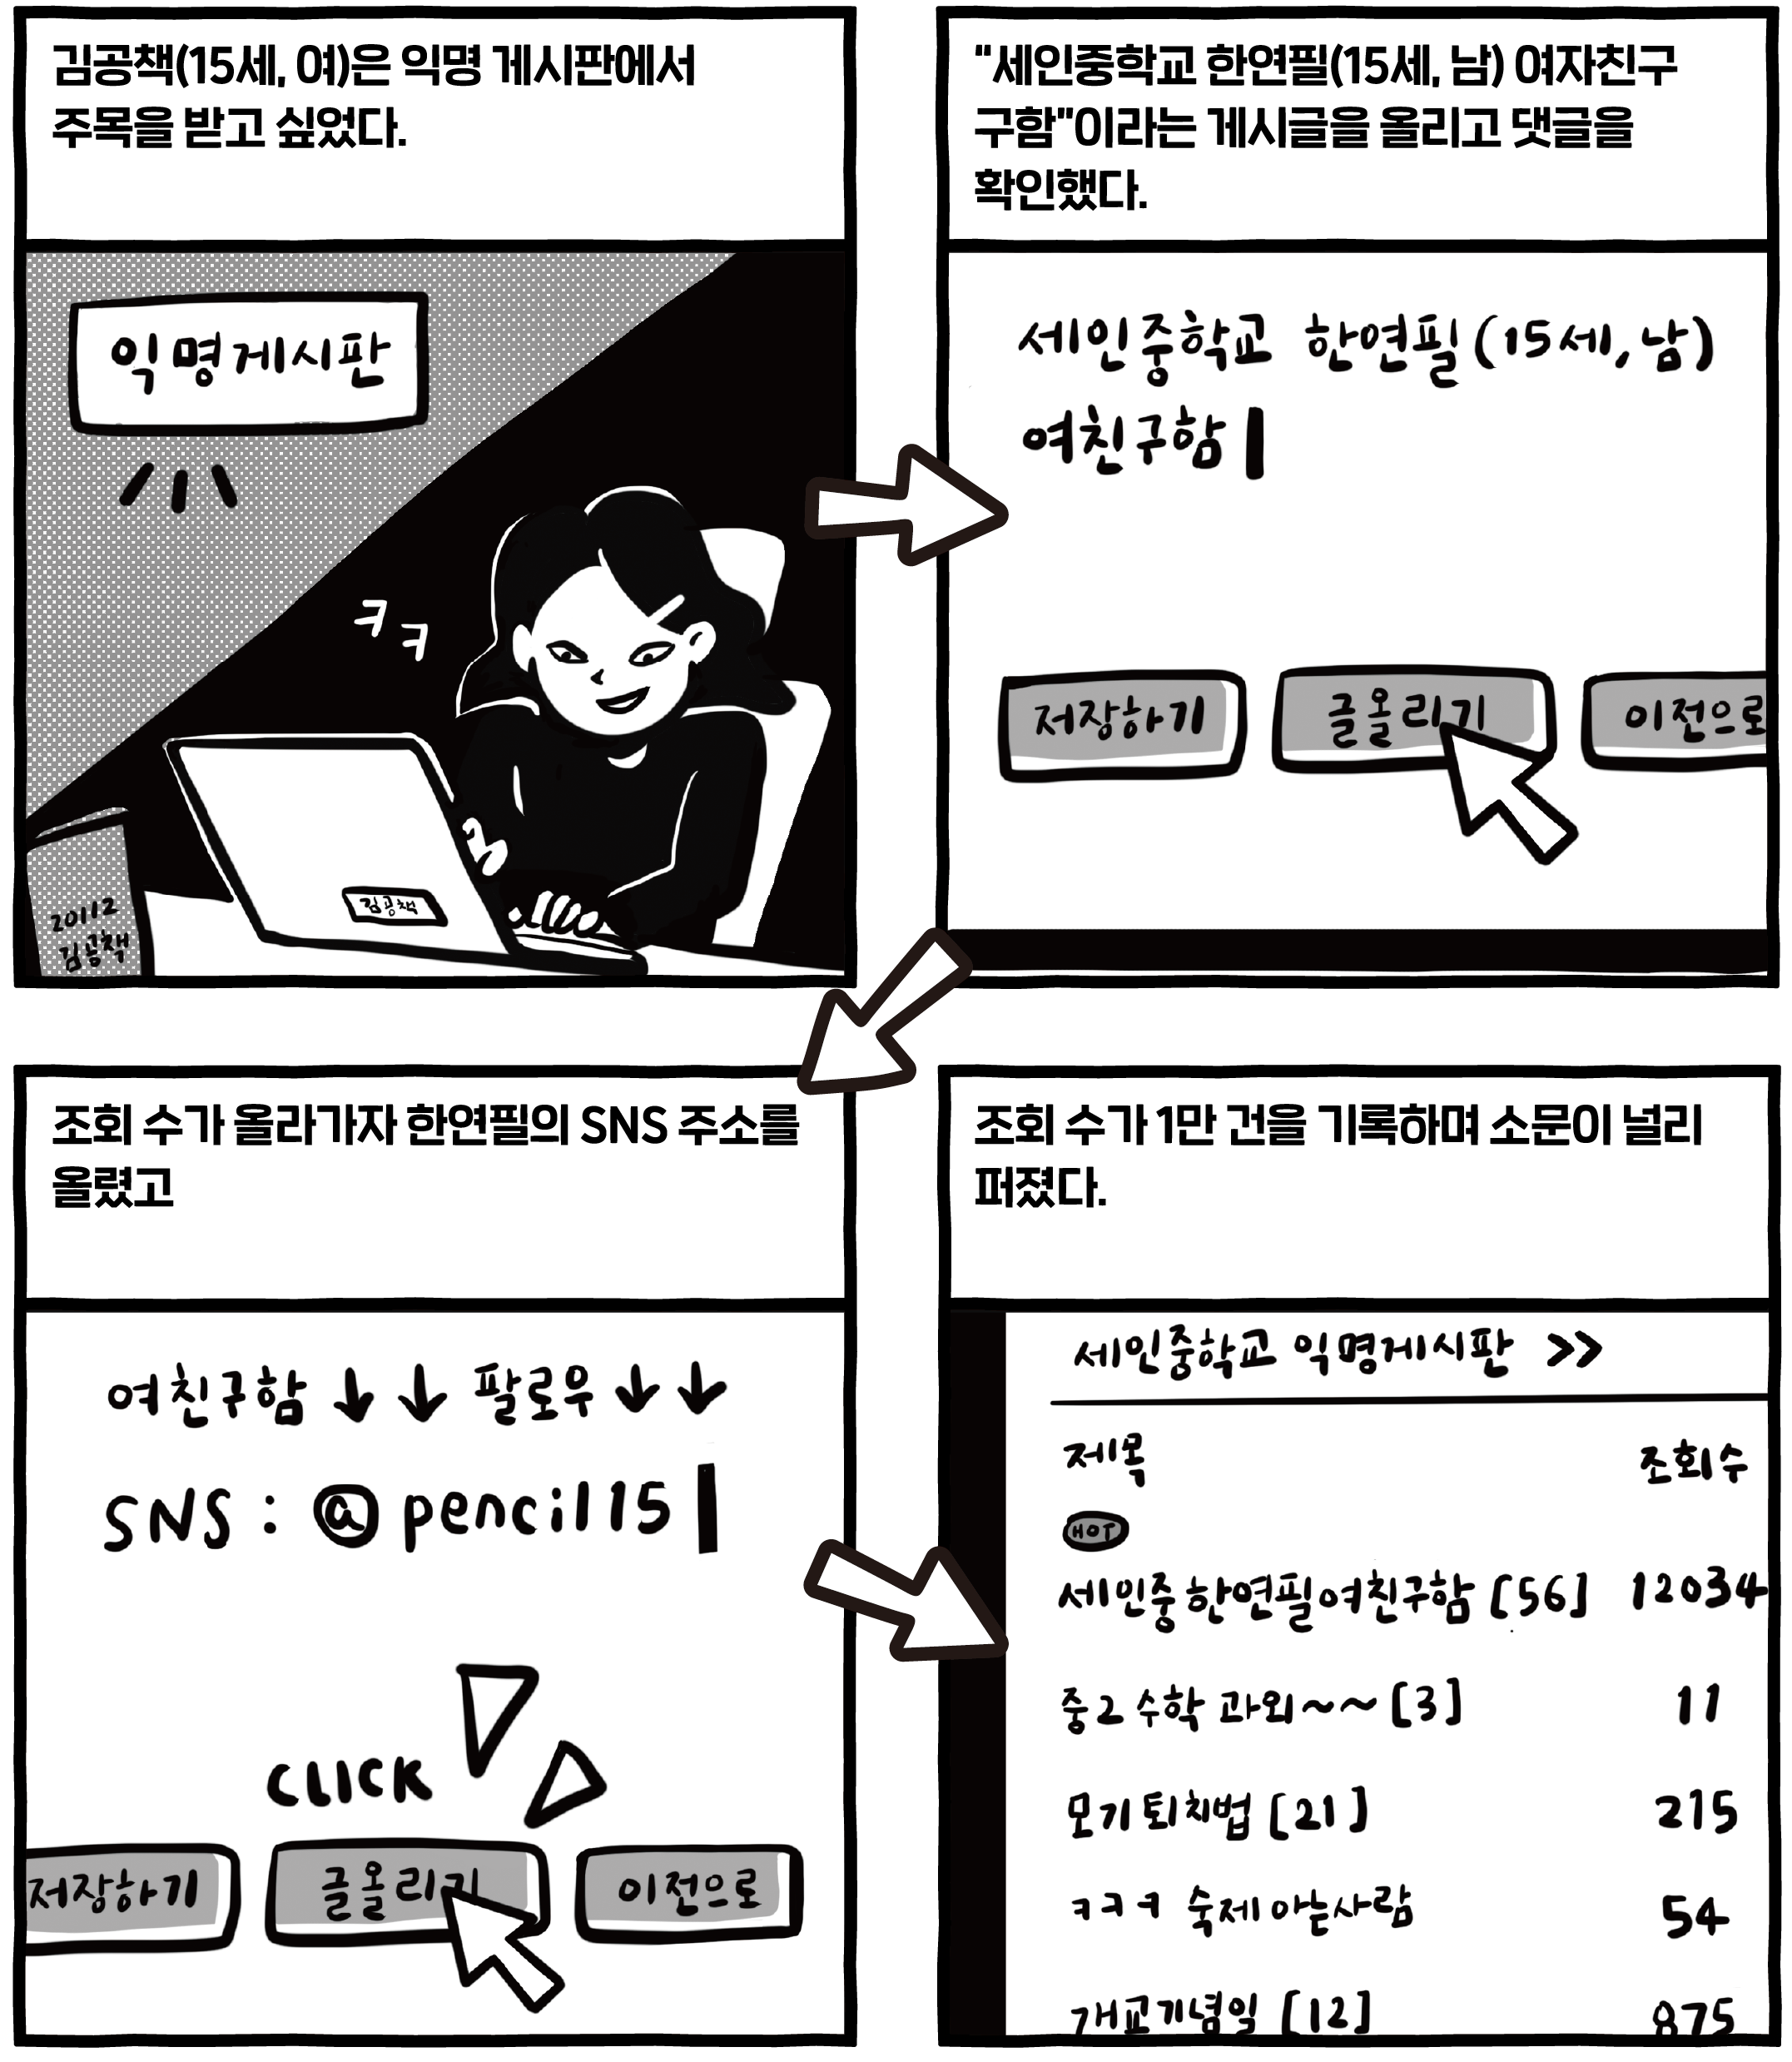 김공책(15세, 여)은 익명 게시판에서
주목을 받고 싶었다.
익명게시판
ㅋㅋ
김공책
20112
김공책
“세인중학교 한연필(15세, 남) 여자친구
구함”이라는 게시글을 올리고 댓글을
확인했다.
세인중학교 한연필(15세, 남)
여친구함
저장하기 글올리기 이전으로
조회 수가 올라가자 한연필의 SNS 주소를
올렸고
여친구함 ↓ ↓ 팔로우 ↓ ↓
SNS : @pencil15
CLICK
저장하기 글올리기 이전으로
조회 수가 1만 건을 기록하며 소문이 널리
퍼졌다.
세인중학교 익명게시판 >>
제목 조회수
HOT
세인중 한연필여친구함 [56] 12034
중2 수학 과외~~ [3] 11
모기퇴치법 [21] 215
ㅋㅋㅋ 숙제 아는사람 54
개교기념일 [12] 875